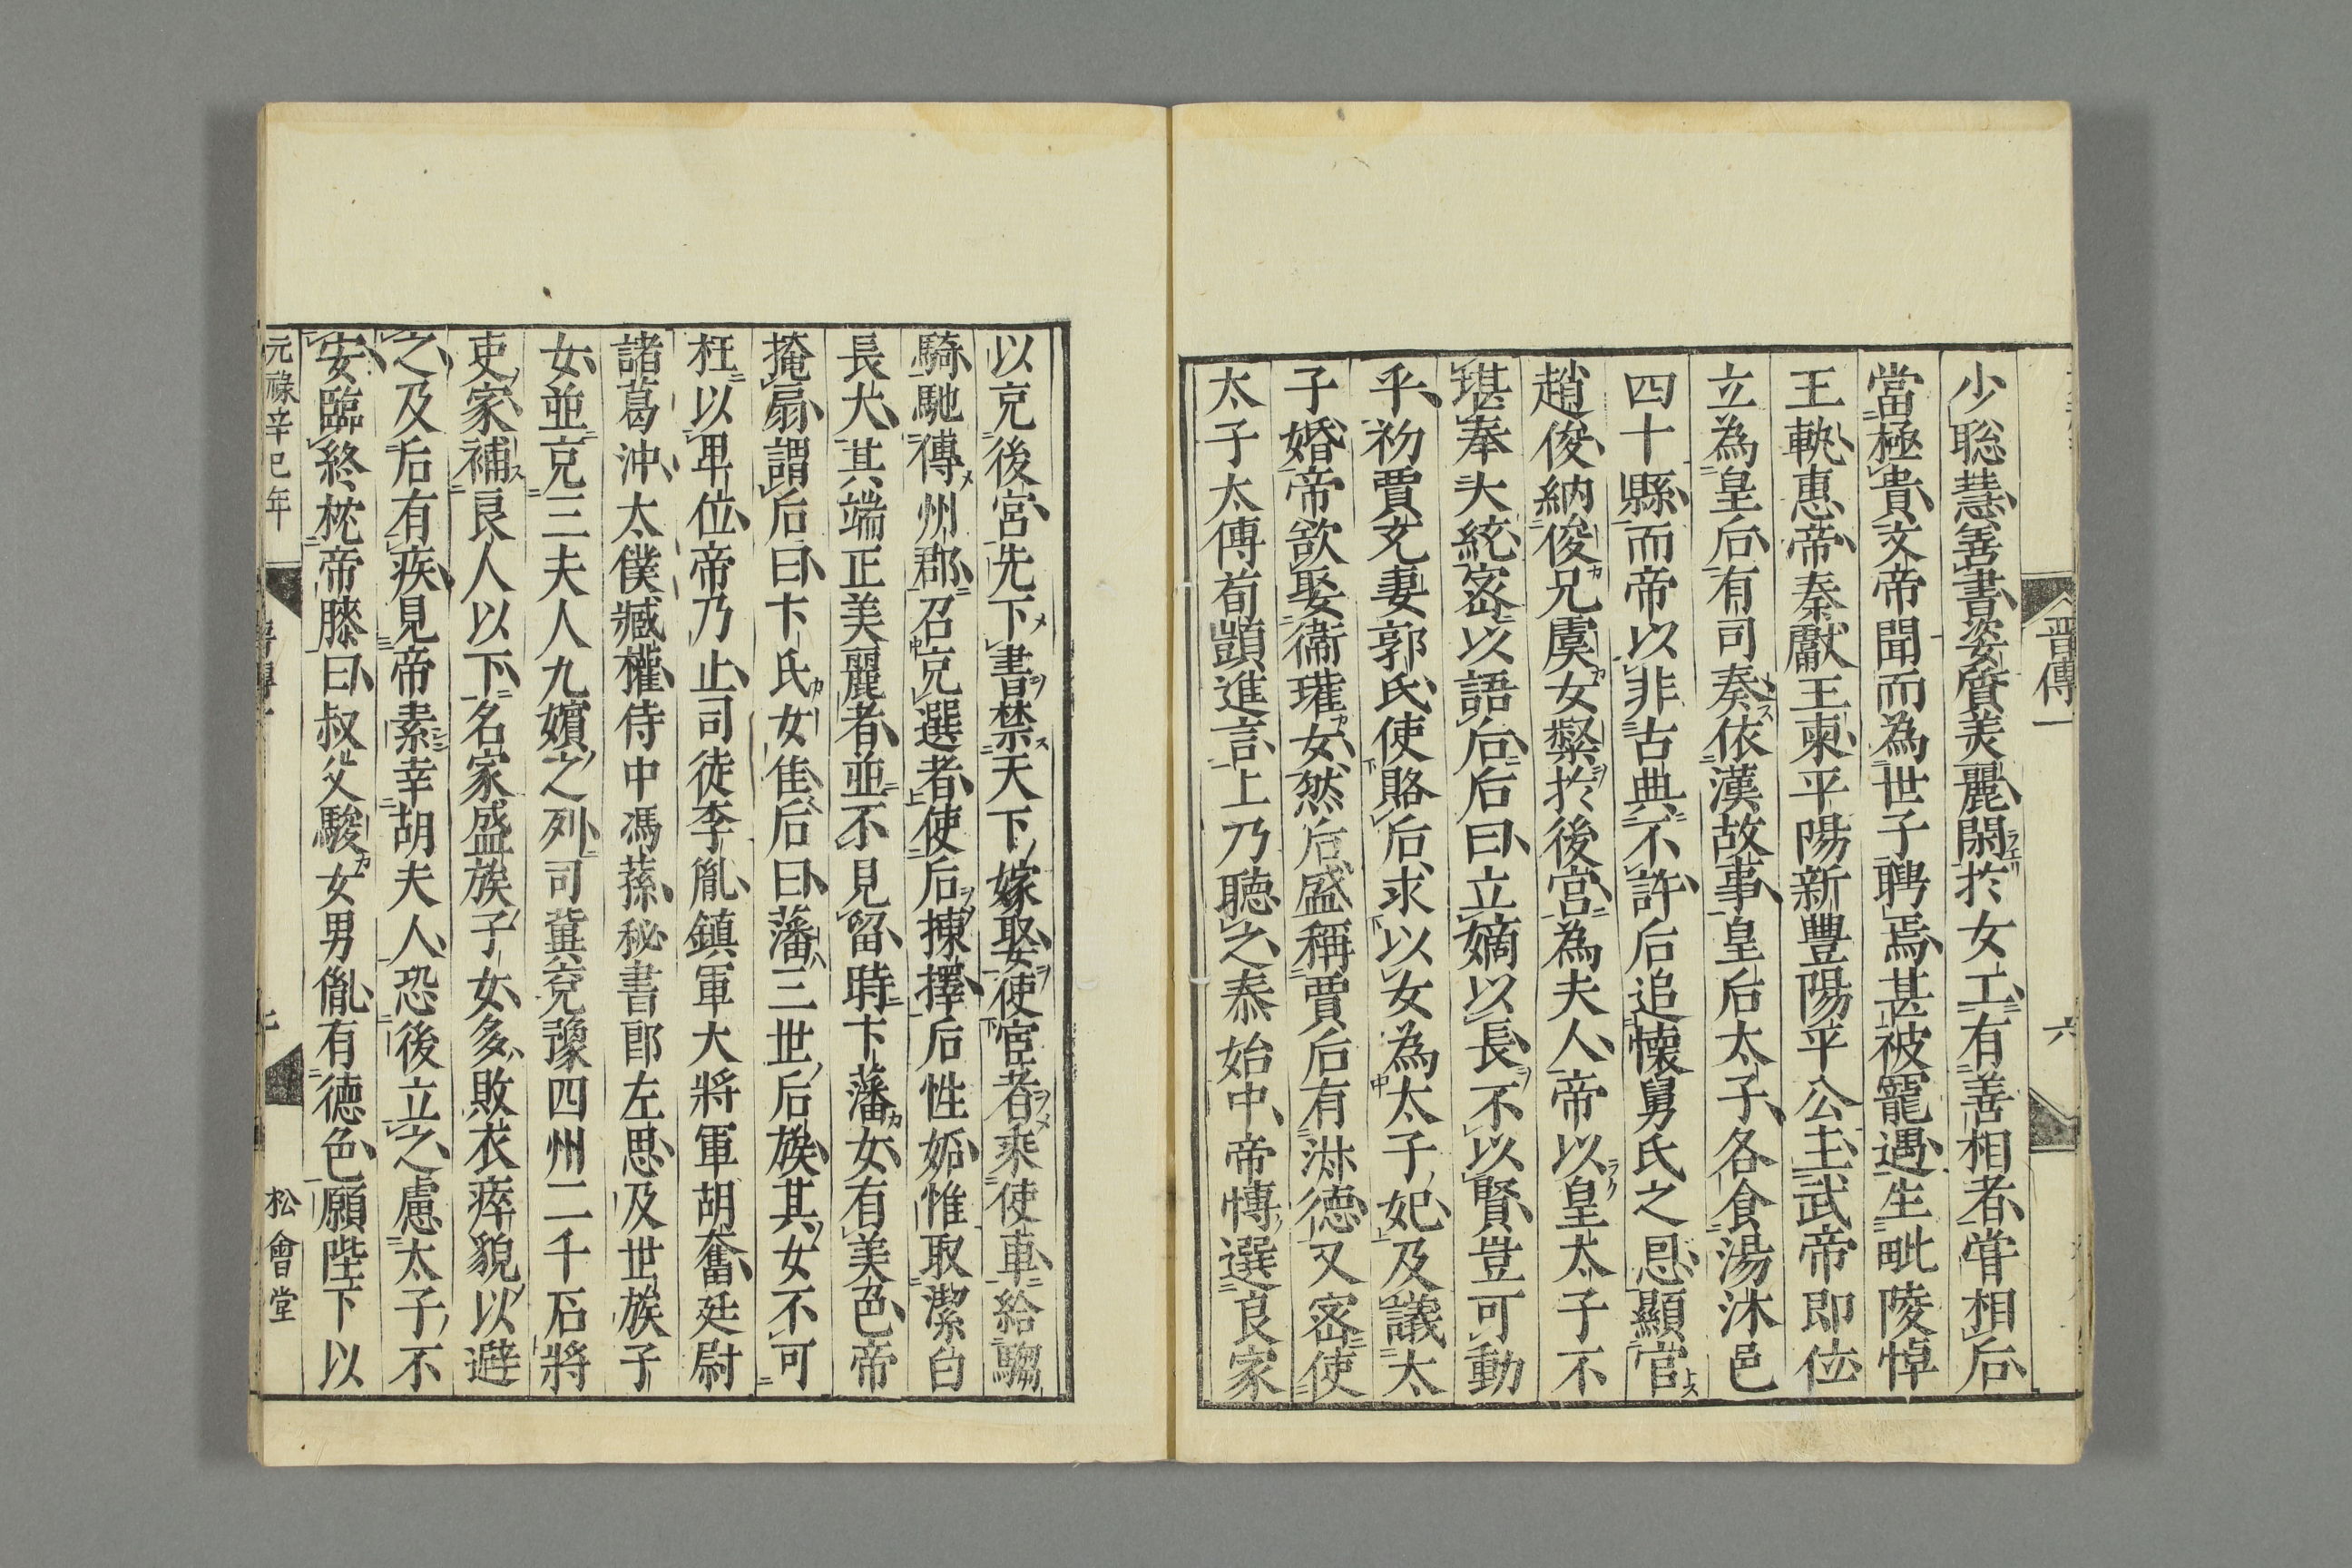 晉傳一
六
少聡慧善書姿質美麗閑於女工有善相者甞相后
當極貴文帝聞而為世子聘焉甚被寵遇生毗陵悼
王軌惠帝秦獻王柬平陽新豐陽平公主武帝即位
立為皇后有司奏依漢故事皇后太子各食湯沐邑
四十縣而帝以非古典不許后追懷舅氏之恩顯官
趙俊納俊兄虞女粲於後宮為夫人帝以皇太子不
堪奉大統密以語后后曰立嫡以長不以賢豈可動
乎初賈充妻郭氏使賂后求以女為太子妃及議太
子婚帝欲娶衞瓘女然后盛稱賈后有淑德又密使
太子太傅荀顗進言上乃聽之泰始中帝博選良家
以充後宮先下書禁天下嫁娶使宦者乘使車給騶
騎馳傳州郡召充選者使后揀擇后性妬惟取潔白
長大其端正美麗者並不見留時卞藩女有美色帝
掩扇謂后曰卞氏女佳后曰藩三世后族其女不可
枉以卑位帝乃止司徒李胤鎮軍大將軍胡奮廷尉
諸葛沖太僕臧權侍中馮蓀秘書郎左思及世族子
女並充三夫人九嬪之列司冀兗豫四州二千石將
吏家補良人以下名家盛族子女多敗衣瘁貌以避
之及后有疾見帝素幸胡夫人恐後立之慮太子不
安臨終枕帝膝曰叔父駿女男胤有德色願陛下以
元祿辛巳年
松會堂